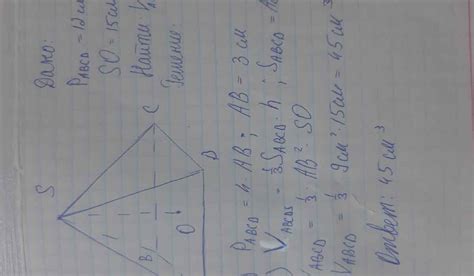 Дано:
P ABCD = 12 см
SO = 15 см
Найти V
Решение:
S
C
B
O
D
P ABCD = 4 · AB; AB = 3 см
) V ABCDS = 1/3 S ABCD · h; S ABCD = A
V ABCD = 1/3 · AB² · SO
V ABCD = 1/3 · 9 см² · 15 см = 45 см³
Ответ: 45 см³